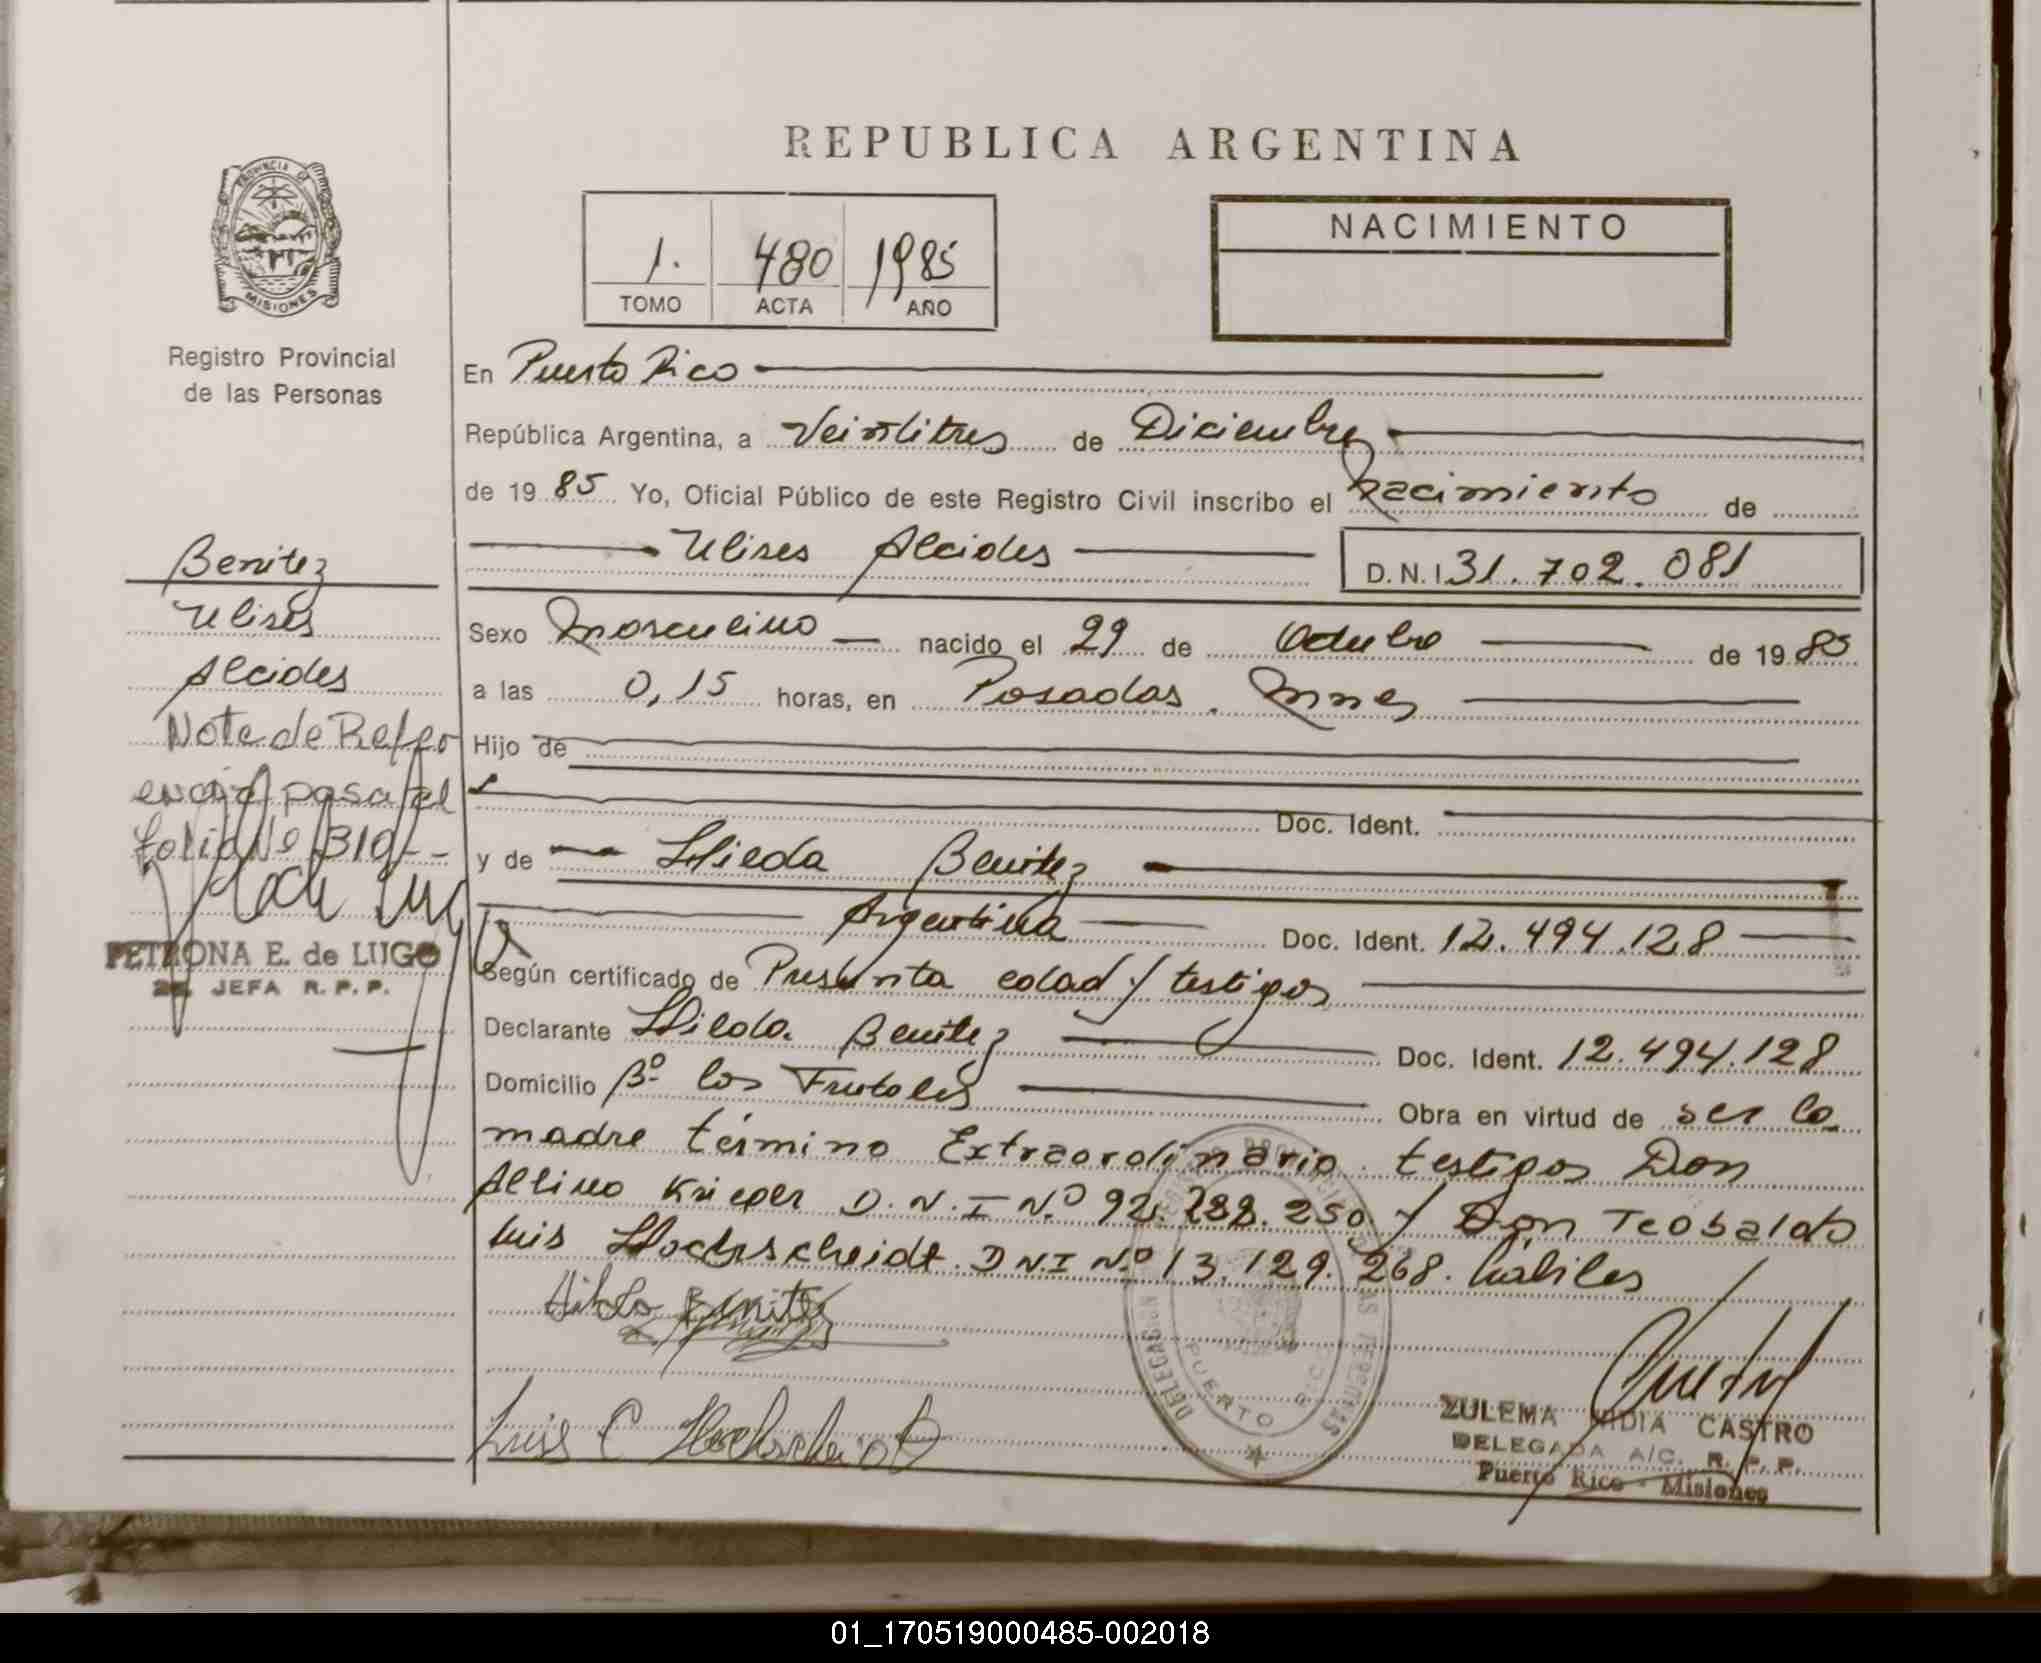 REPUBLICA ARGENTINA
PROVINCIA DE MISIONES
Registro Provincial
de las Personas
1. 480 1985
TOMO ACTA AÑO
NACIMIENTO
En Puerto Rico
República Argentina, a Veintitres de Diciembre
de 19 85 Yo, Oficial Público de este Registro Civil inscribo el nacimiento de
Ulises Alcides D.N.I 31.702.081
Sexo masculino nacido el 29 de Octubre de 19 85
a las 0,15 horas, en Posadas. Mnes
Hijo de
Doc. Ident.
y de Hilda Benitez
Argentina Doc. Ident. 12.494.128
Según certificado de Presunta edad y testigos
Declarante Hilda Benitez Doc. Ident. 12.494.128
Domicilio Bº los Frutales Obra en virtud de ser la
madre término Extraordinario. testigos Don
Albino Krieger D.N.I Nº 92.288.250 y Don Teobaldo
Luis Hochscheidt. DNI Nº 13.129.268. hábiles
Hilda Benitez
Luis C Hochscheidt
PUERTO RICO
ZULEMA LIDIA CASTRO
DELEGADA A/C. R. P. P.
Puerto Rico - Misiones
Benitez
Ulises
Alcides
Nota de Refer
encia pasa al
folio Nº 310--
PETRONA E. de LUGO
2a. JEFA R. P. P.
01_170519000485-002018